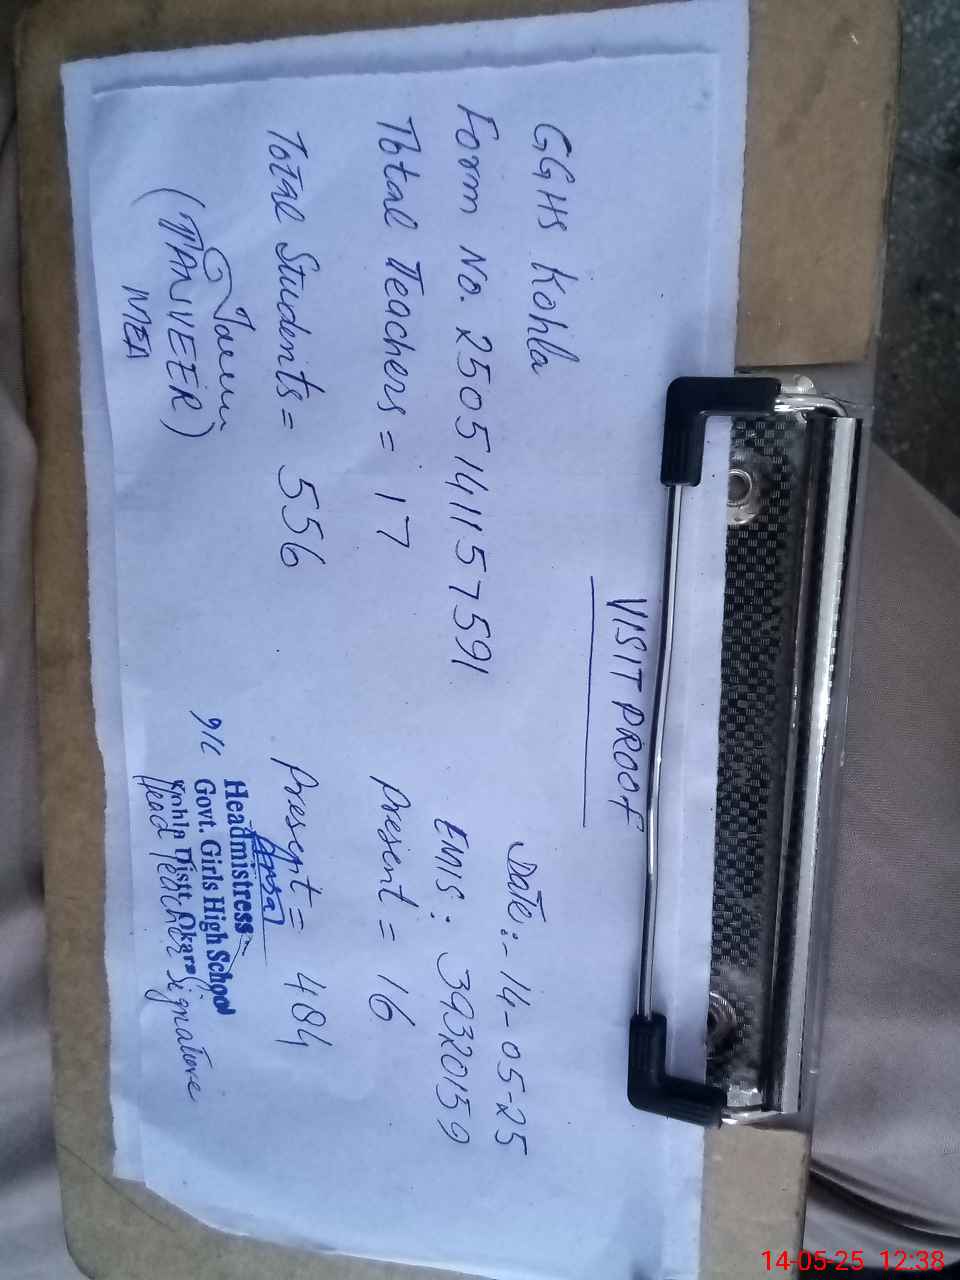 VISIT PROOF
GGHS Kohla Date:- 14-05-25
Form No. 2505141157591 EMIS: 39320159
Total Teachers = 17 Present = 16
Total Students = 556 Present = 484
(TANVEER)
MEA
Headmistress
Govt. Girls High School
Kohla Distt. Okara
Head Teacher Signature
14-05-25 12:38